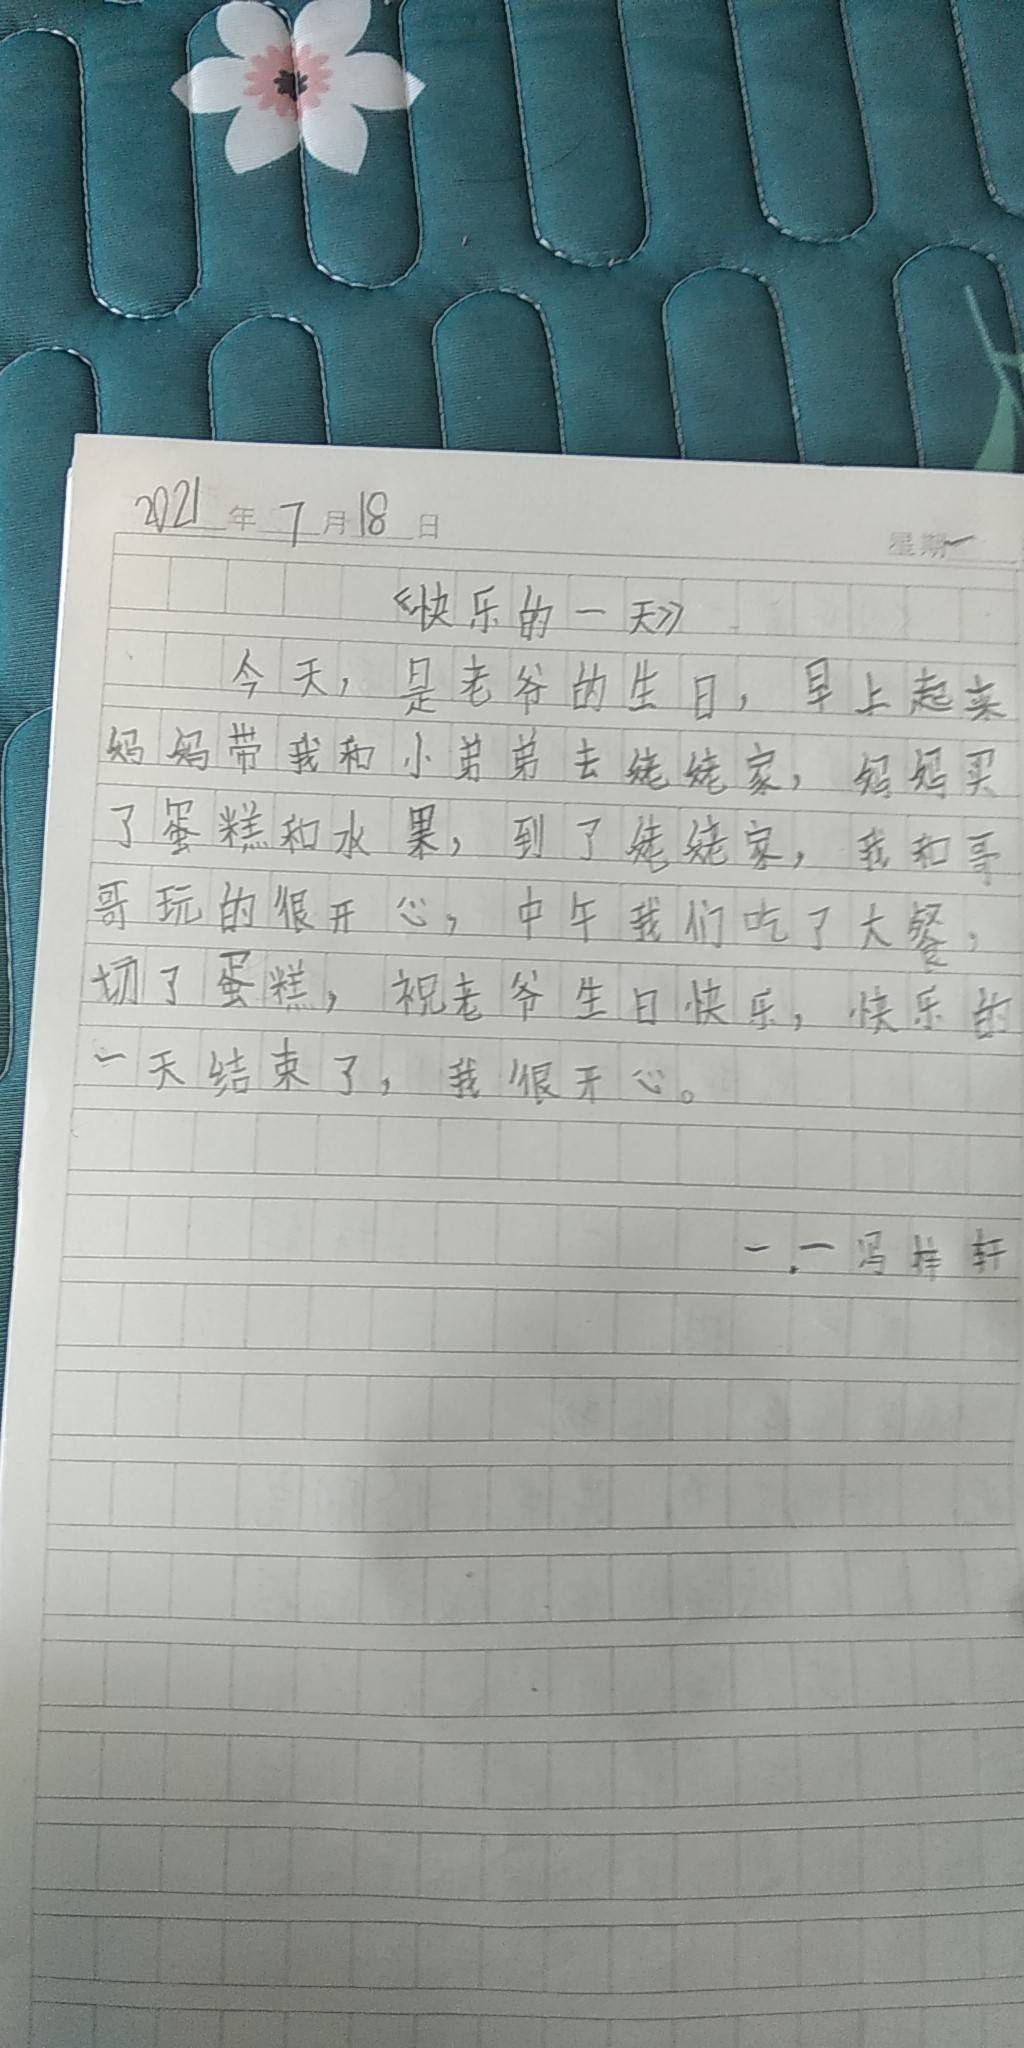 2021年7月18日 星期一
《快乐的一天》
今天，是老爷的生日，早上起来
妈妈带我和小弟弟去姥姥家，妈妈买
了蛋糕和水果，到了姥姥家，我和哥
哥玩的很开心，中午我们吃了大餐，
切了蛋糕，祝老爷生日快乐，快乐的
一天结束了，我很开心。
一.一冯梓轩